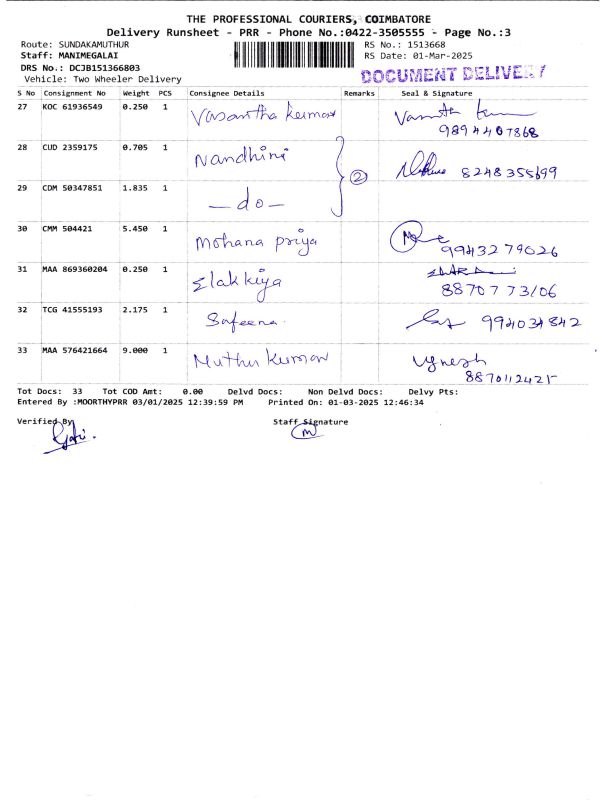 THE PROFESSIONAL COURIERS, COIMBATORE
Delivery Runsheet - PRR - Phone No.:0422-3505555 - Page No.:3
Route: SUNDAKAMUTHUR RS No.: 1513668
Staff: MANIMEGALAI RS Date: 01-Mar-2025
DRS No.: DCJB151366803
DOCUMENT DELIVERY
Vehicle: Two Wheeler Delivery
S No Consignment No Weight PCS Consignee Details Remarks Seal & Signature
27 KOC 61936549 0.250 1 Vasantha kumar
9894407868
28 CUD 2359175 0.705 1 Nandhini 2 8248355699
29 CDM 50347851 1.835 1 — do —
30 CMM 504421 5.450 1 Mohana priya
9943279026
31 MAA 869360204 0.250 1 Elakkiya
8870773106
32 TCG 41555193 2.175 1 Safeena. 994034842
33 MAA 576421664 9.000 1 Muthu kumar Vignesh
8870112425
Tot Docs: 33 Tot COD Amt: 0.00 Delvd Docs: Non Delvd Docs: Delvy Pts:
Entered By :MOORTHYPRR 03/01/2025 12:39:59 PM Printed On: 01-03-2025 12:46:34
Verified By Staff Signature
M